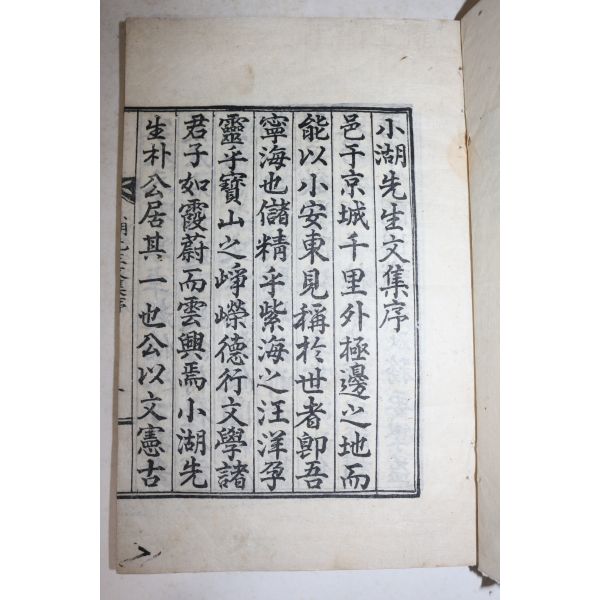 小湖先生文集序
邑于京城千里外極邊之地而
能以小安東見稱於世者卽吾
寧海也儲精乎紫海之汪洋孕
靈乎寶山之崢嶸德行文學諸
君子如霞蔚而雲興焉小湖先
生朴公居其一也公以文憲古